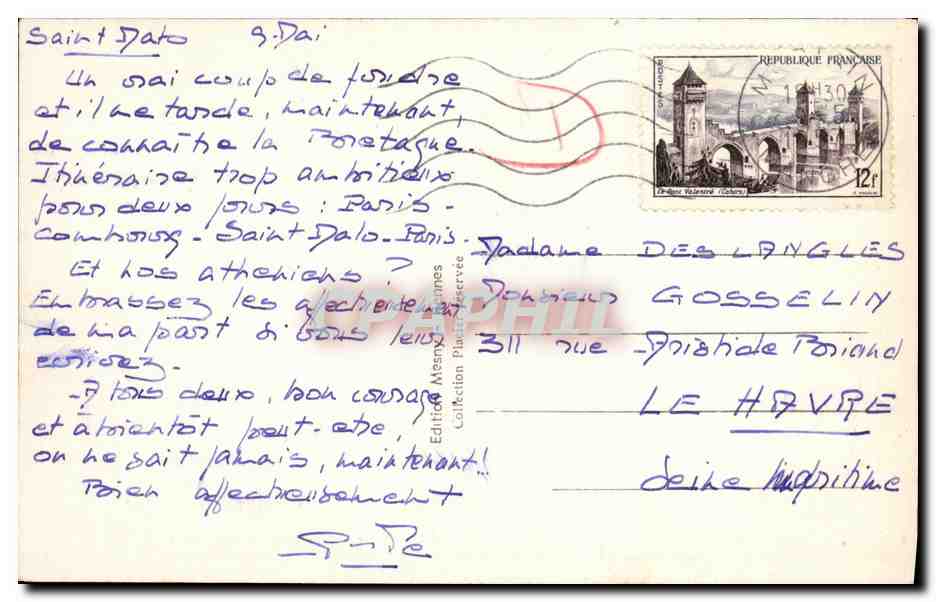 Saint Malo 9 Mai
Un vrai coup de foudre
et il me tarde, maintenant,
de connaître la Bretagne.
Itinéraire trop ambitieux
pour deux jours : Paris -
Combourg - Saint Malo - Paris -
Et nos athéniens ?
Embrassez les affectueusement
de ma part si vous leur
écrivez -
A tous deux, bon courage,
et à bientôt peut-etre,
on ne sait jamais, maintenant !!
Bien affectueusement
D
Edition Mesny
Collection Placier réservée
CPAPHIL
REPUBLIQUE FRANÇAISE
POSTES
Le Pont Valentré (Cahors)
12f
Madame DESLANGLES
Monsieur GOSSELIN
311 rue Aristide Briand
LE HAVRE
Seine Maritime